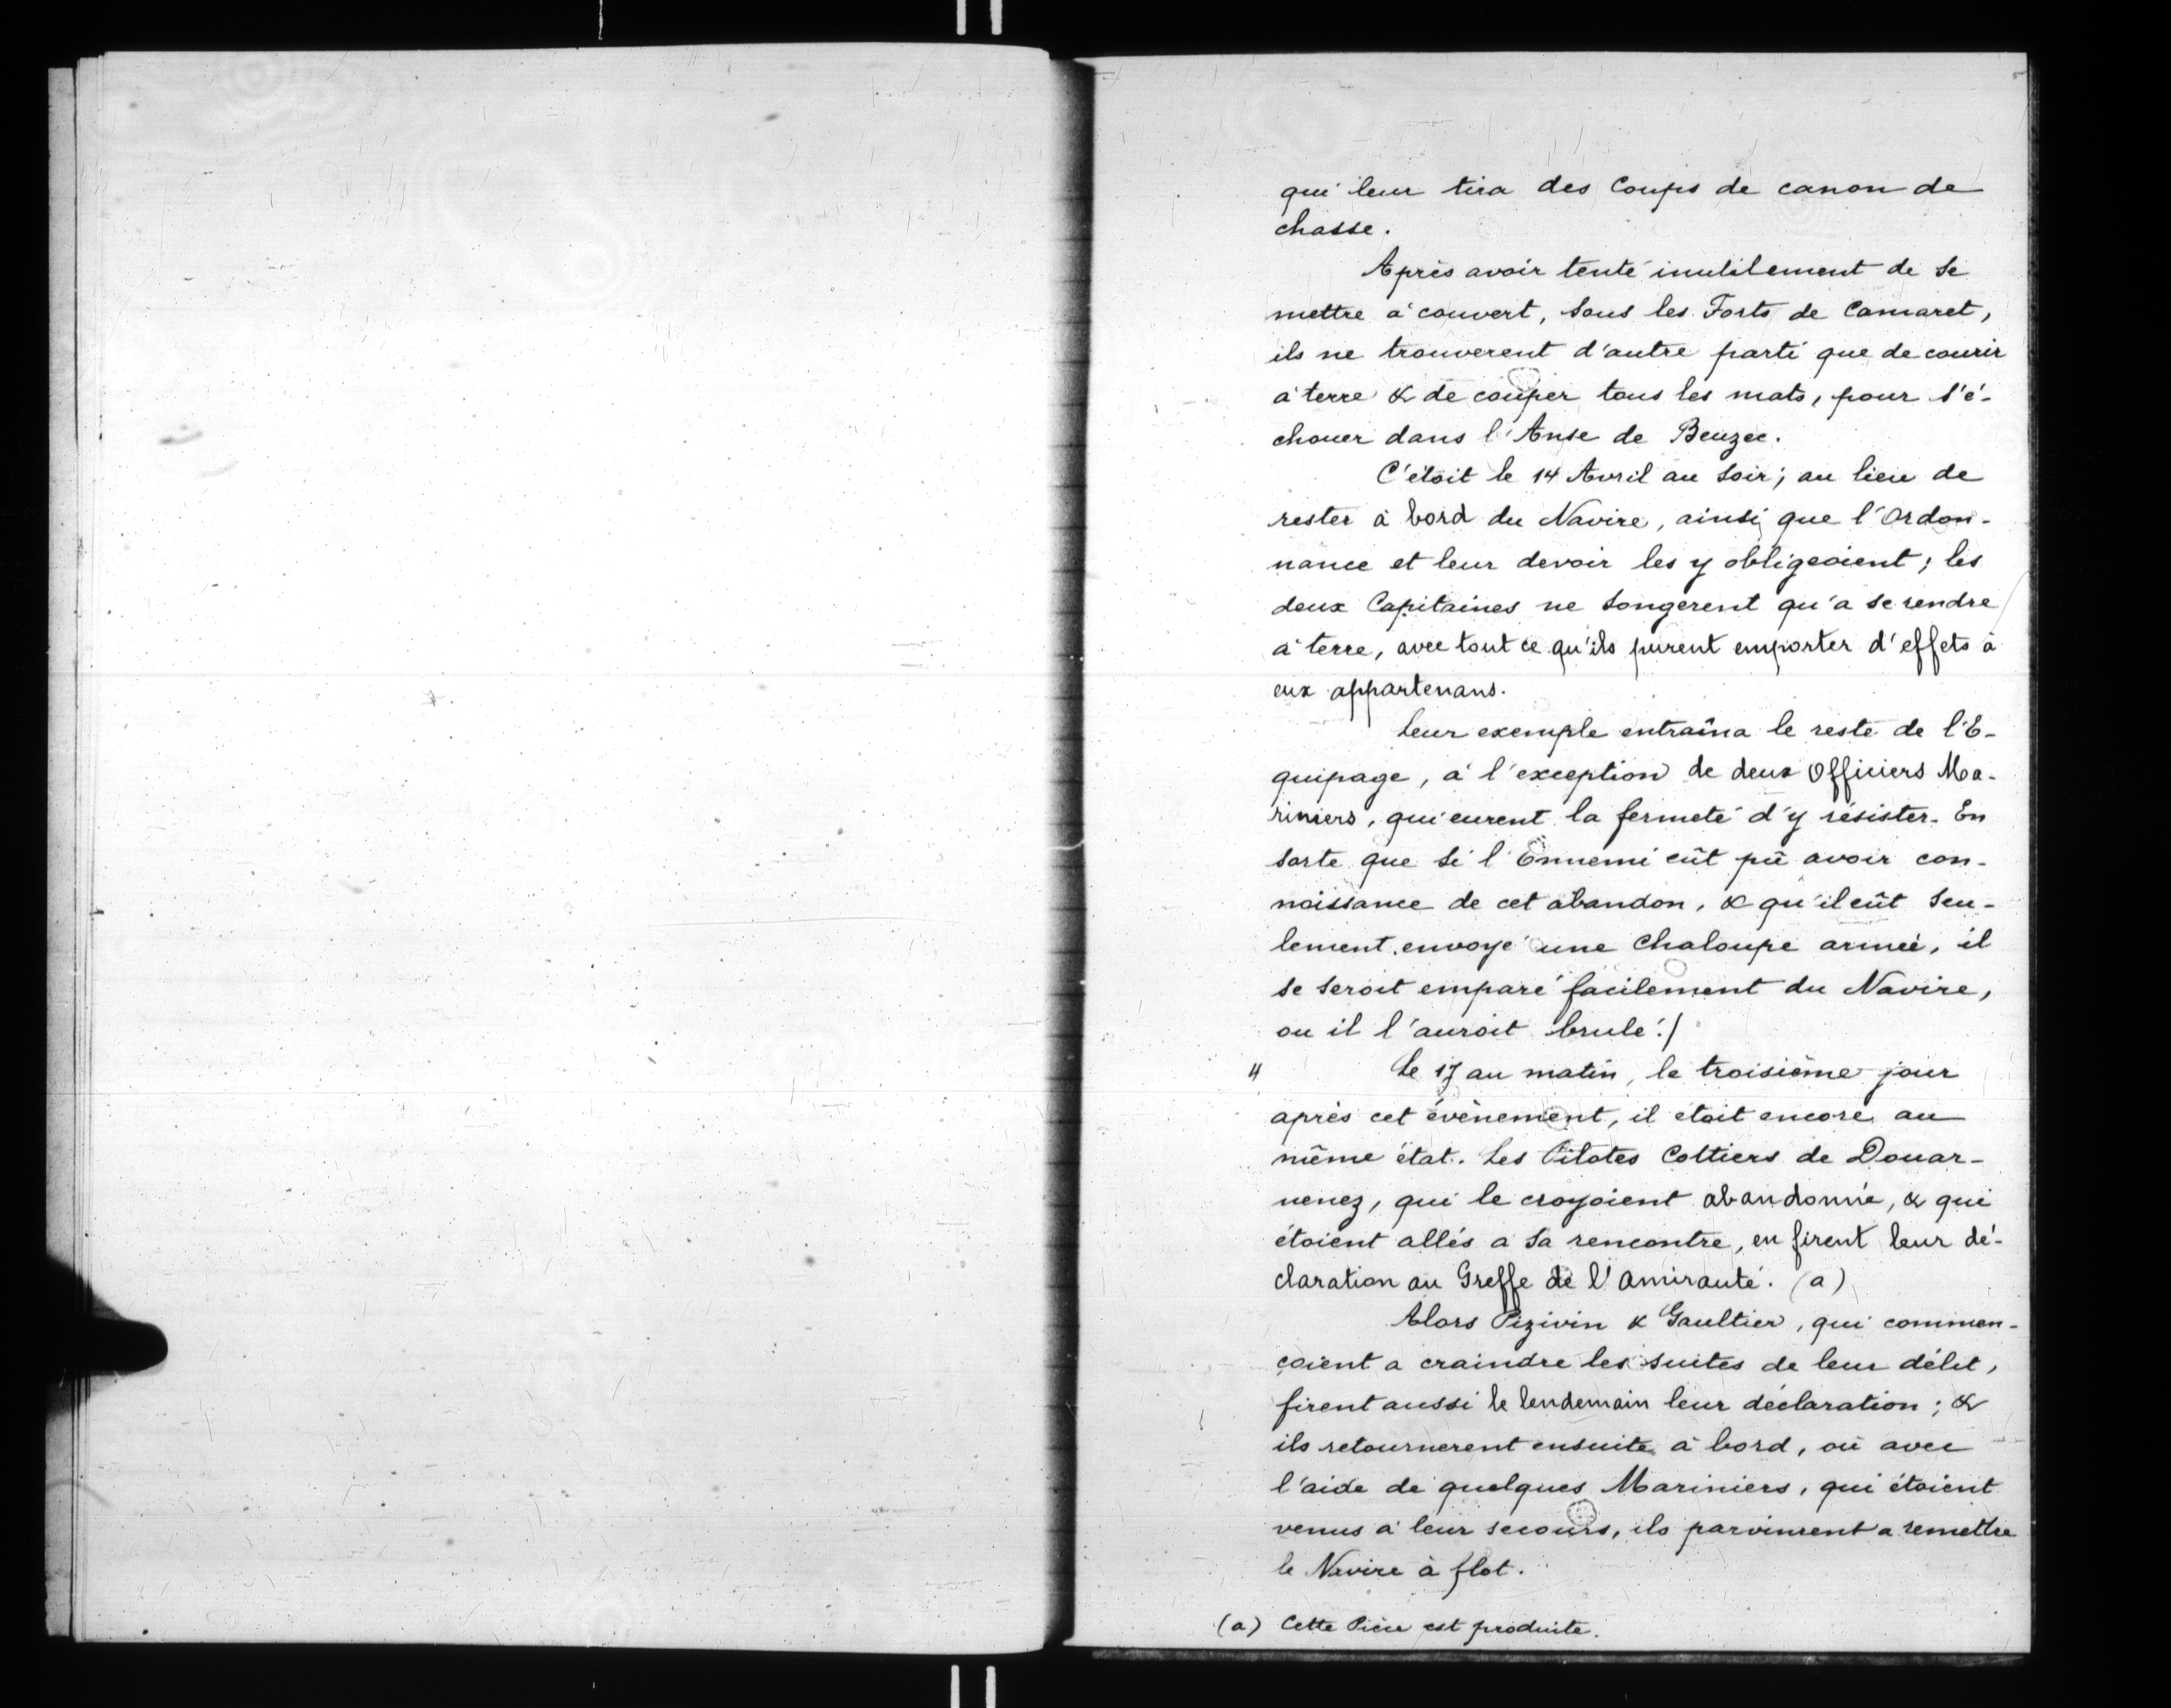 qui leur tira des Coups de canon de
chasse.
Après avoir tenté inutilement de se
mettre à couvert, sous les Forts de Camaret,
ils ne trouverent d'autre parti que de courir
à terre & de couper tous les mats, pour s'é-
chouer dans l'Anse de Beuzec.
C'étoit le 14 Avril au soir; au lieu de
rester à bord du Navire, ainsi que l'Ordon-
nance et leur devoir les y obligeoient; les
deux Capitaines ne songerent qu'a se rendre
à terre, avec tout ce qu'ils purent emporter d'effets à
eux appartenans.
Leur exemple entraîna le reste de l'E-
quipage, à l'exception de deux Officiers Ma-
riniers, qui eurent la fermeté d'y résister. En
sorte que si l'Ennemi eût pû avoir con-
noissance de cet abandon, & qu'il eût seu-
lement envoyé une Chaloupe armée, il
se seroit emparé facilement du Navire,
ou il l'auroit brulé./
4 Le 17 au matin, le troisième jour
après cet évènement, il etoit encore au
même état. Les Pilotes Cottiers de Douar-
nenez, qui le croyoient abandonné, & qui
étoient allés a sa rencontre, en firent leur dé-
claration au Greffe de l'Amirauté. (a)
Alors Pizivin & Gaultier, qui commen-
çoient a craindre les suites de leur délit,
firent aussi le lendemain leur déclaration; &
ils retournerent ensuite à bord, où avec
l'aide de quelques Mariniers, qui étoient
venus à leur secours, ils parvinrent a remettre
le Navire à flot.
(a) Cette Pièce est produite.